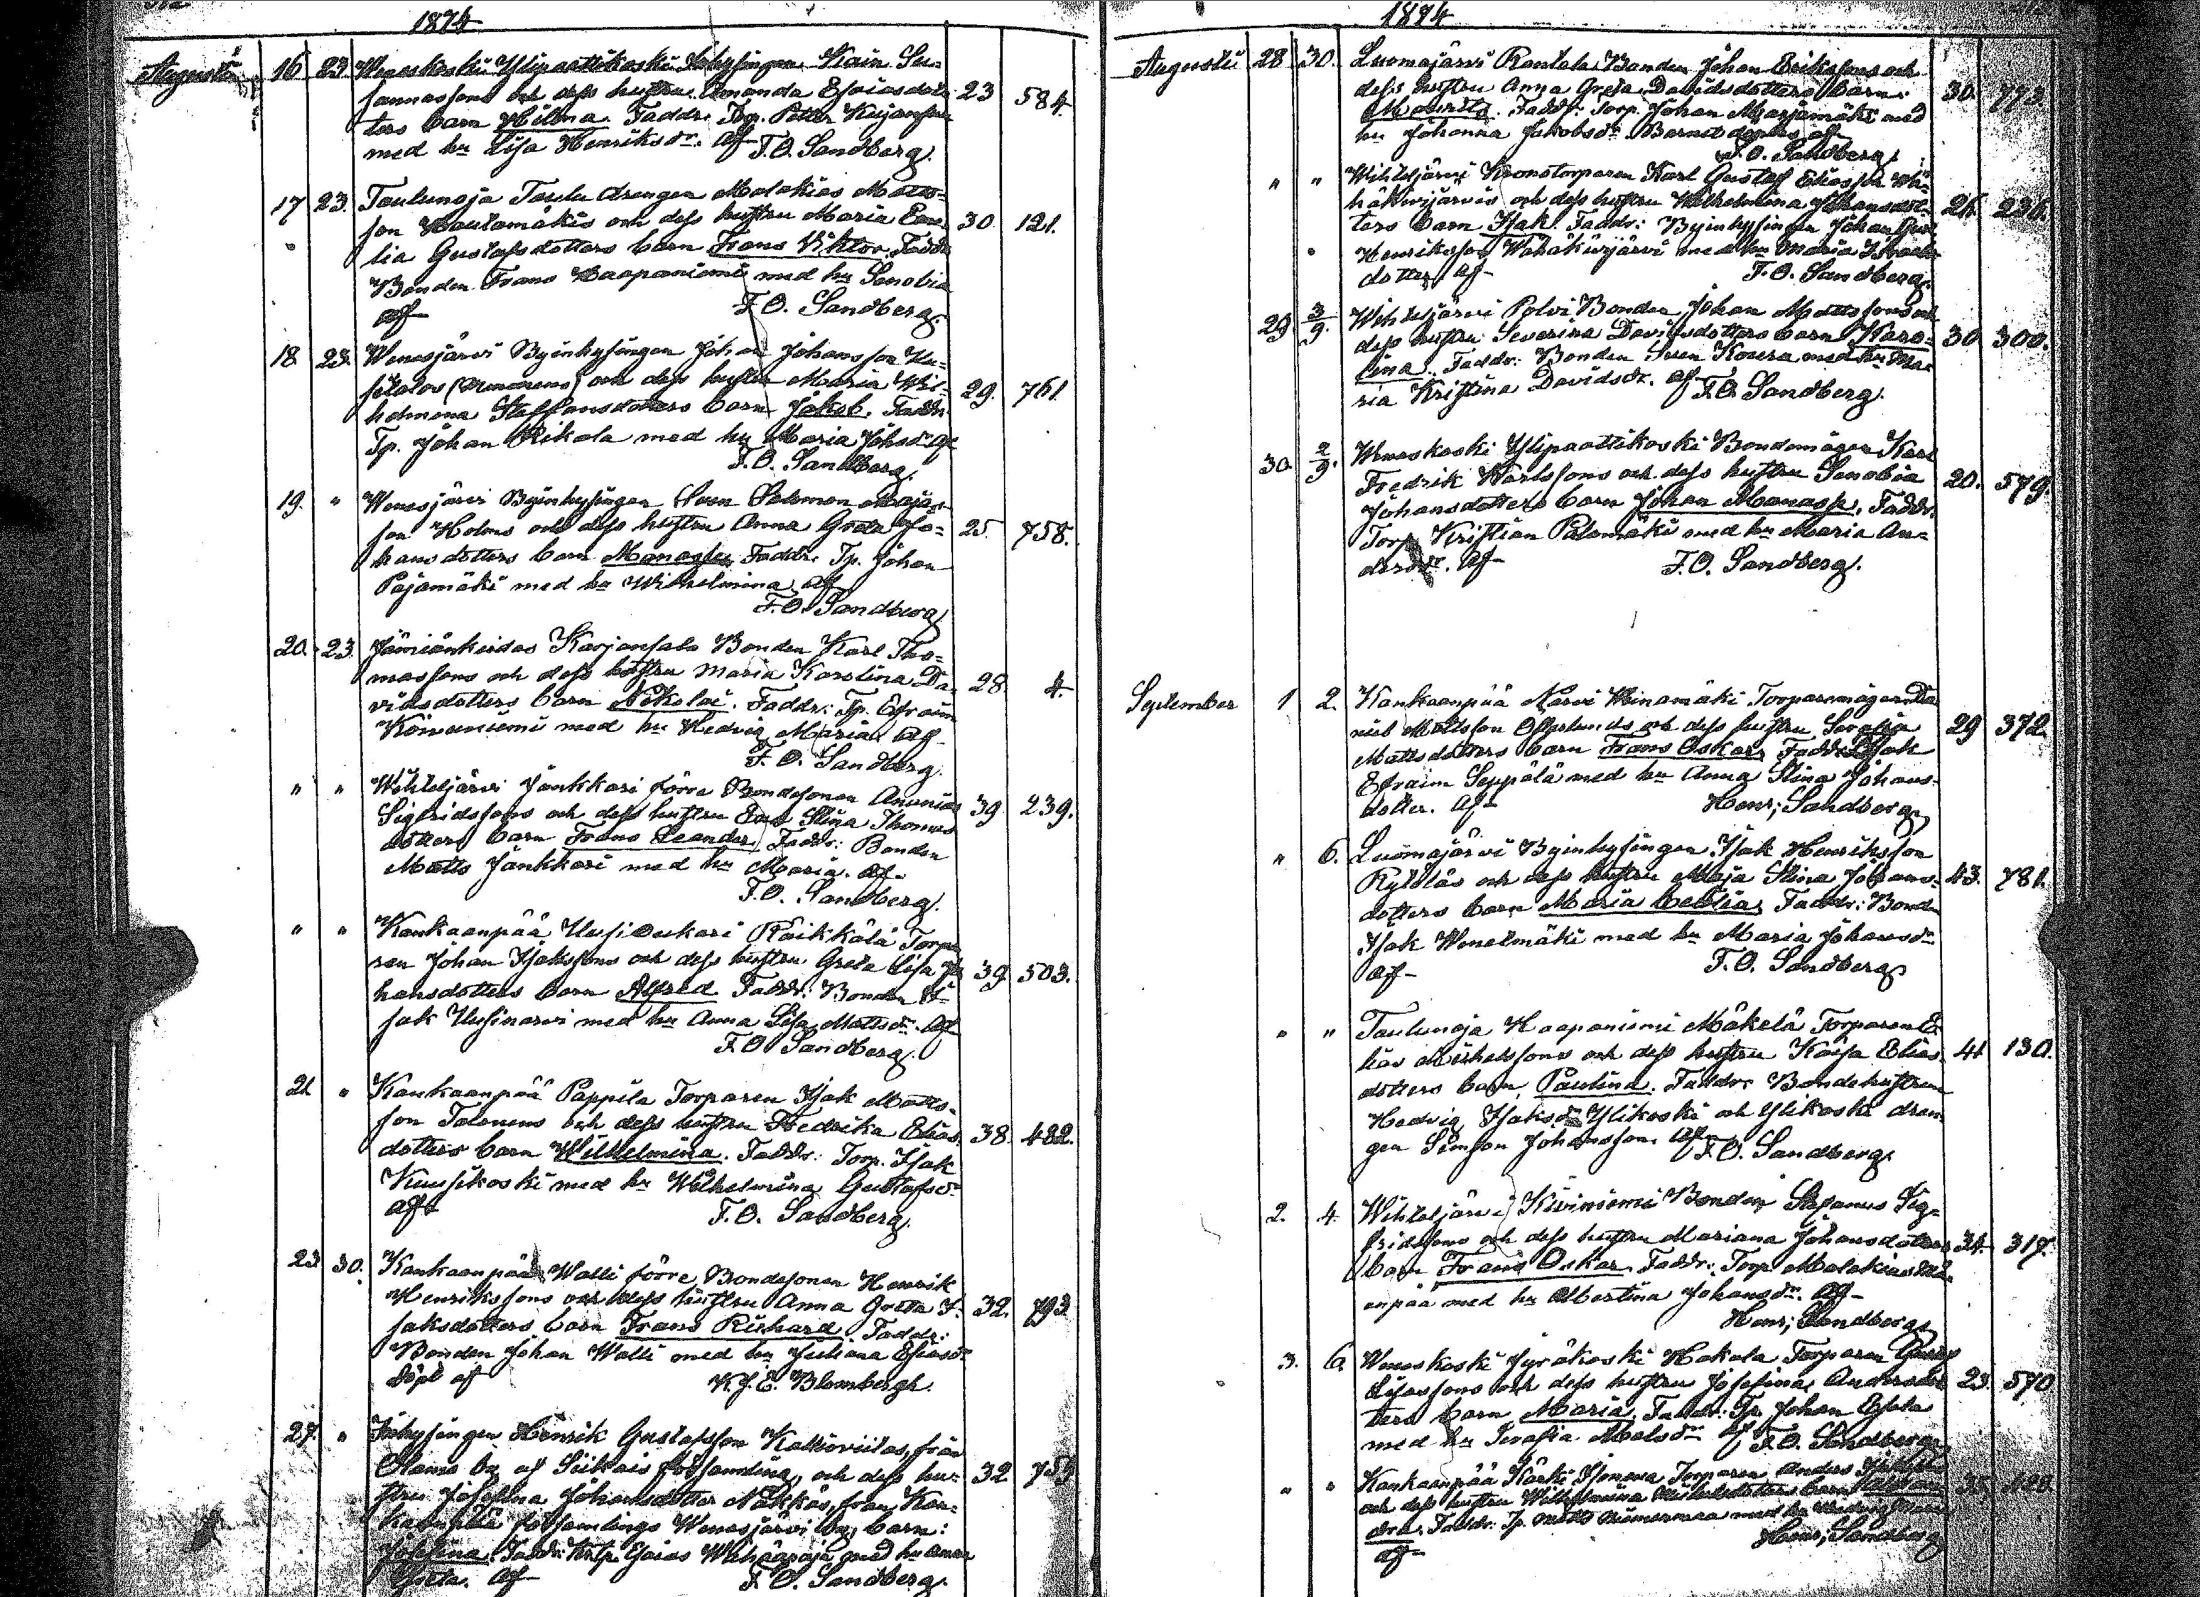 1874
Augusti 16 23. Weneskoski Ylipaattikoski Inhysingen Stsu-
sannassons och dess hustru Amanda Esaiasdot-
ters barn Hilma. Faddr. Torp. Petter 23 584.
med hu Lisa Henriksdr. Af F.O. Sandberg.
17 23. Taulunoja Taulu drengen Malakias Matts-
son Hautamäkis och dess hustru Maria 30. 121.
lia Gustafsdotters barn Frans Viktor. Faddr
Bonden Frans Haapaniemi med hu Senobia
af F.O. Sandberg.
18 23. Wenesjärvi Byinhysingen Johan Johansson
och dess hustru Maria Wil- 29. 761
helmina Staffansdotters barn Jakob. Faddr.
Tp. Johan Rikala med hu Maria Johsdr. Af
F.O. Sandberg.
19. " Wenesjärvi Byinhysingen Sven Salomon
son Holms och dess hustru Anna Greta Jo- 25. 758.
hansdotters barn Manasse. Faddr. Tp. Johan
Pajamäki med hu Wilhelmina af
F.O. Sandberg
20. 23. Jämiänkeidas Karjansalo Bonden Karl Tho-
massons och dess hustru Maria Karolina Da- 28. 4.
vidsdotters barn Nikolai. Faddr: Tp. Efraim
Koivuniemi med hu Hedvig Maria. Af
F.O. Sandberg.
" " Wihteljärvi Jänkkari förre Bondesonen Ananias
Sigfridssons och dess hustru Eva Stina Thomas 39. 239.
dotters barn Frans Leander. Faddr: Bonden
Matts Jänkkari med hu Maria. Af
F.O. Sandberg.
" " Kankaanpää Uusi Ruikkälä Torpa-
ren Johan Isakssons och dess hustru Greta Lisa Jo 39. 503.
hansdotters barn Alfred. Faddr: Bonden I-
sak Uusinarvi med hu Anna Lisa Mattsdr. Af
F.O. Sandberg.
21. " Kankaanpää Pappila Torparen Isak Matts-
son Talonens och dess hustru Fredrika Elias 38. 482.
dotters barn Wilhelmina. Faddr: Torp. Isak
Kuusikoski med hu Wilhelmina Gustafsdr
af F.O. Sandberg.
23. 30. Kankaanpää Walli förre Bondesonen Henrik
Henrikssons och dess hustru Anna Greta I- 32. 793
saksdotters barn Frans Rikhard. Faddr:
Bonden Johan Walli med hu Juliana Esaiasdr
döpt af K.J.E. Blombergh.
27. " Inhysingen Henrik Gustafsson Kallioviitas, från
Otamo by af Siikais församling, och dess hu- 32. 759
stru Josefina Johansdotter Näkkäs, från Kan-
kaanpää församlings Wenesjärvi by, barn:
Josefina. Faddr: Esaias med hu Anna
Greta. Af F.O. Sandberg.
1874
Augusti 28 30. Luomajärvi Rantala Bonden Johan Erikssons och
dess hustru Anna Greta Davidsdotters barn 30. 773.
Maurits. Faddr. Torp. Johan Marjamäki med
hu Johanna Jakobsdr. Barnet döptes af
F.O. Sandberg.
" " Wihteljärvi Kronotorparen Karl Gustaf Eliasson Wä-
häkivijärvis och dess hustru Wilhelmina Johansdot- 26. 236.
ters barn Isak. Faddr: Byinhysingen Johan
Henriksson Wähäkivijärvi med hu Maria
dotter. Af F.O. Sandberg.
29 3/9. Wihteljärvi Polvi Bonden Johan Mattssons och
dess hustru Severina Davidsdotters barn Karo- 30 300.
lina. Faddr: Bonden Sven Koura med hu Ma-
ria Kristina Davidsdr. Af F.O. Sandberg.
30. 2/9. Weneskoski Ylipaattikoski Bondemågen Karl
Fredrik Karlssons och dess hustru Senobia 20. 579.
Johansdotters barn Johan Manasse. Faddr.
Torp. Kristian Palomäki med hu Maria An-
dersdr. Af F.O. Sandberg.
September 1 2. Kankaanpää Narvi Weinamäki Torparemågen Da
niel Mattsson Österlunds och dess hustru Serafia 29 372.
Mattsdotters barn Frans Oskar. Faddr. Isak
Efraim Seppälä med hu Anna Stina Johans-
dotter. Af Henr; Sandberg
" 6. Luomajärvi Byinhysingen Isak Henriksson
Kylläs och dess hustru Maja Stina Johans- 43. 781.
dotters barn Maria Cecilia. Faddr: Bonden
Isak Wenelmäki med hu Maria Johansdr
af F.O. Sandberg
" " Taulunoja Haapaniemi Mäkelä Torparen E
lias Mikelssons och dess hustru Kaisa Elias 41 130.
dotters barn Paulina. Faddr: Bondehustrun
Hedvig Isaksdr Ylikoski och Ylikoski drän
gen Simson Johansson. Af F.O. Sandberg.
2. 4. Wihteljärvi Kiviniemi Bonden Stefanus Sig-
fridssons och dess hustru Mariana Johansdotters 34. 317.
barn Frans Oskar. Faddr: Torp. Malakias
anpää med hu Albertina Johansdr. Af
Henr; Sandberg
3. 6. Weneskoski Jyräkoski Hakala Torparen
Esaiassons och dess hustru Josefina Andersdot 23. 570
ters barn Maria. Faddr: Tp. Johan
med hu Serafia Mattsdr. Af F.O. Sandberg.
" " Kankaanpää Kärki Torparen Anders
och dess hustru Wilhelmina Mikelsdotters barn 35.
dra. Faddr: Tp. Matts med hu Hedvig
af Henr; Sandberg